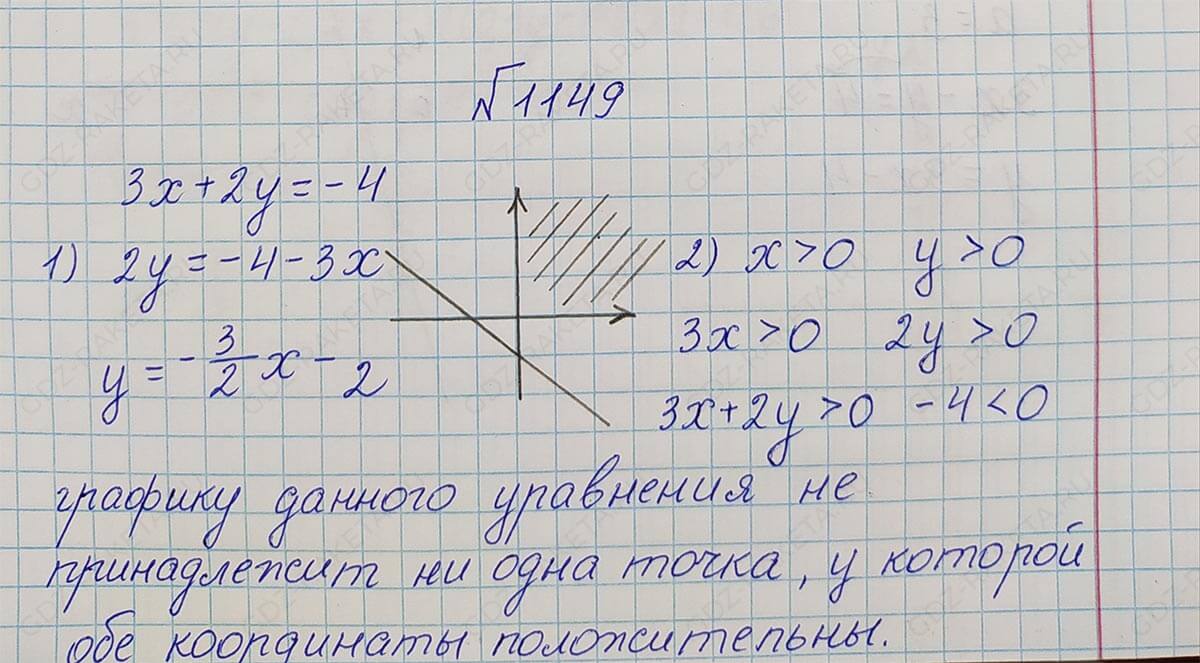 №1149
3x+2y=-4
1) 2y=-4-3x
y=-3/2x-2
2) x>0 y>0
3x>0 2y>0
3x+2y>0 -4<0
графику данного уравнения не
принадлежит ни одна точка, у которой
обе координаты положительны.
GDZ-RAKETA.RU